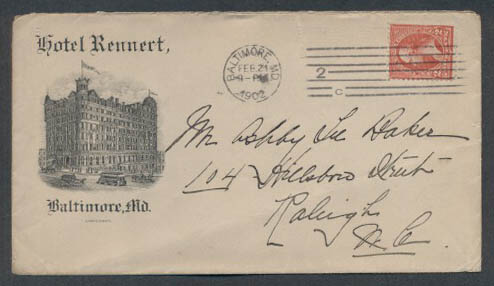 Hotel Rennert,
Baltimore, Md.
BALTIMORE, MD.
FEB 21
9-PM
1902
2
C
Mr Ashby Lee Baker
104 Hillsboro Street
Raleigh
N.C.